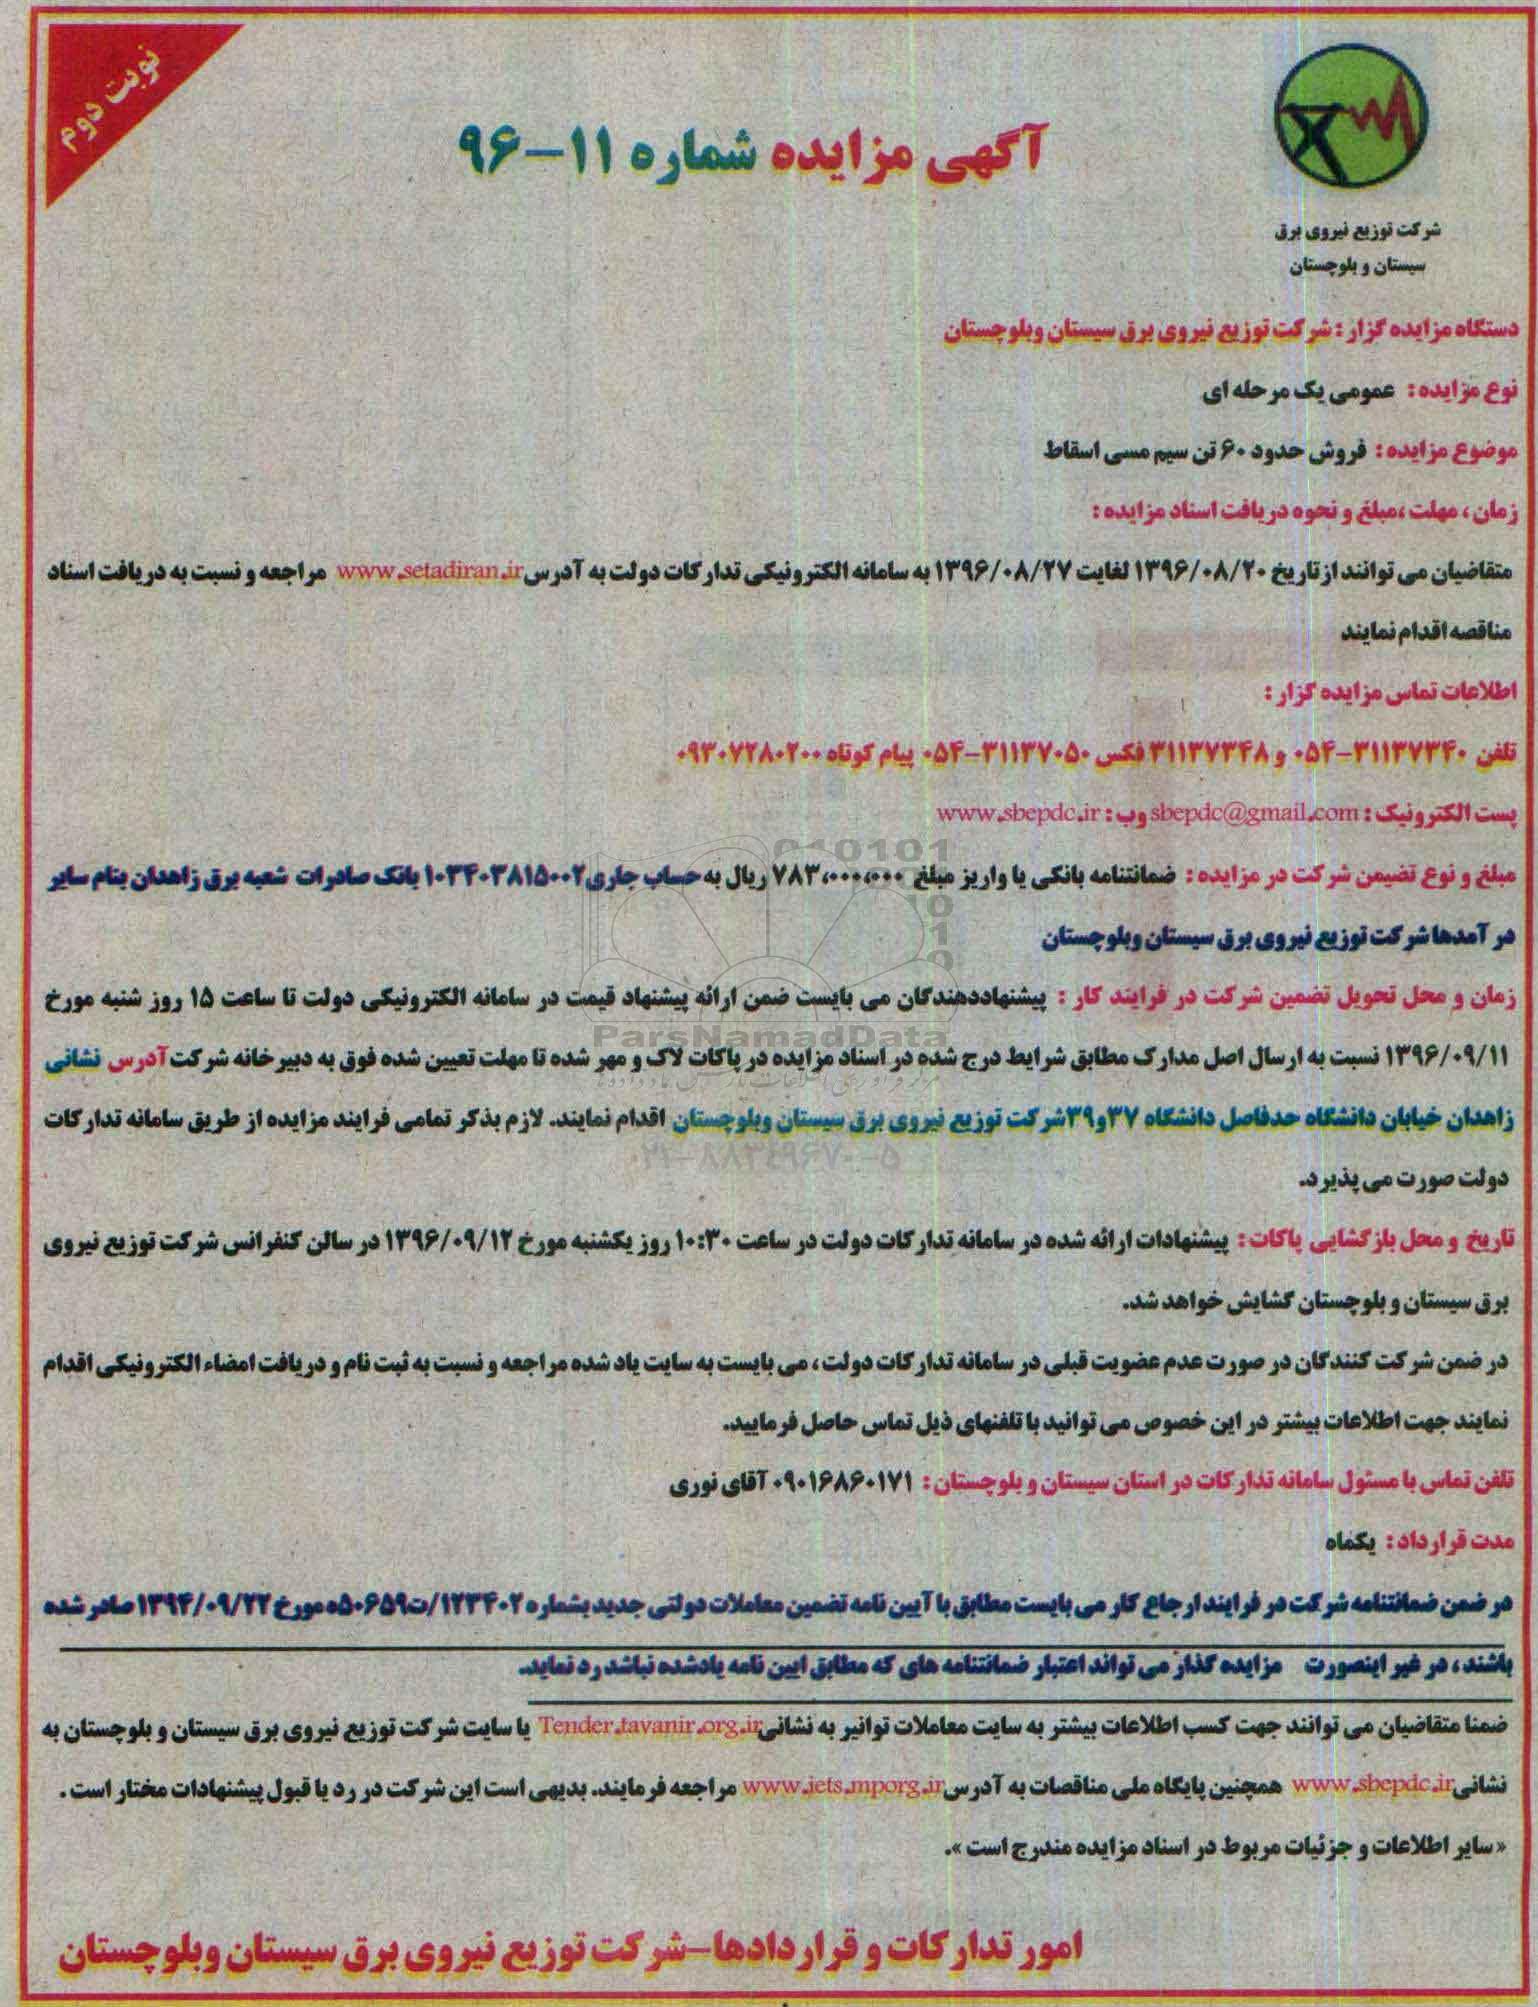 نوبت دوم
آگهی مزایده شماره ۱۱-۹۶
شرکت توزیع نیروی برق
سیستان و بلوچستان
دستگاه مزایده گزار : شرکت توزیع نیروی برق سیستان وبلوچستان
نوع مزایده : عمومی یک مرحله ای
موضوع مزایده : فروش حدود ۶۰ تن سیم مسی اسقاط
زمان ، مهلت ،مبلغ و نحوه دریافت اسناد مزایده :
متقاضیان می توانند ازتاریخ ۱۳۹۶/۰۸/۲۰ لغایت ۱۳۹۶/۰۸/۲۷ به سامانه الکترونیکی تدارکات دولت به آدرس www.setadiran.ir مراجعه و نسبت به دریافت اسناد
مناقصه اقدام نمایند
اطلاعات تماس مزایده گزار :
تلفن ۳۱۱۳۷۳۴۰-۰۵۴ و ۳۱۱۳۷۳۴۸ فکس ۳۱۱۳۷۰۵۰-۰۵۴ پیام کوتاه ۰۹۳۰۷۲۸۰۲۰۰
پست الکترونیک : sbepdc@gmail.com وب : www.sbepdc.ir
مبلغ و نوع تضیمن شرکت در مزایده : ضمانتنامه بانکی یا واریز مبلغ ۷۸۳،۰۰۰،۰۰۰ ریال به حساب جاری۱۰۳۴۰۳۸۱۵۰۰۲ بانک صادرات شعبه برق زاهدان بنام سایر
درآمدها شرکت توزیع نیروی برق سیستان وبلوچستان
زمان و محل تحویل تضمین شرکت در فرایند کار : پیشنهاددهندگان می بایست ضمن ارائه پیشنهاد قیمت در سامانه الکترونیکی دولت تا ساعت ۱۵ روز شنبه مورخ
۱۳۹۶/۰۹/۱۱ نسبت به ارسال اصل مدارک مطابق شرایط درج شده در اسناد مزایده در پاکات لاک و مهر شده تا مهلت تعیین شده فوق به دبیرخانه شرکت آدرس نشانی
زاهدان خیابان دانشگاه حدفاصل دانشگاه ۳۷و۳۹شرکت توزیع نیروی برق سیستان وبلوچستان اقدام نمایند. لازم بذکر تمامی فرایند مزایده از طریق سامانه تدارکات
دولت صورت می پذیرد.
تاریخ و محل بازگشایی پاکات : پیشنهادات ارائه شده در سامانه تدارکات دولت در ساعت ۱۰:۳۰ روز یکشنبه مورخ ۱۳۹۶/۰۹/۱۲ در سالن کنفرانس شرکت توزیع نیروی
برق سیستان و بلوچستان گشایش خواهد شد.
در ضمن شرکت کنندگان در صورت عدم عضویت قبلی در سامانه تدارکات دولت ، می بایست به سایت یاد شده مراجعه و نسبت به ثبت نام و دریافت امضاء الکترونیکی اقدام
نمایند جهت اطلاعات بیشتر در این خصوص می توانید با تلفنهای ذیل تماس حاصل فرمایید.
تلفن تماس با مسئول سامانه تدارکات در استان سیستان و بلوچستان : ۰۹۰۱۶۸۶۰۱۷۱ آقای نوری
مدت قرارداد : یکماه
در ضمن ضمانتنامه شرکت در فرایند ارجاع کار می بایست مطابق با آیین نامه تضمین معاملات دولتی جدید بشماره ۱۲۳۴۰۲/ت۵۰۶۵۹ه مورخ ۱۳۹۴/۰۹/۲۲ صادر شده
باشند ، در غیر اینصورت مزایده گذار می تواند اعتبار ضمانتنامه های که مطابق ایین نامه یادشده نباشد رد نماید.
ضمنا متقاضیان می توانند جهت کسب اطلاعات بیشتر به سایت معاملات توانیر به نشانی Tender.tavanir.org.ir یا سایت شرکت توزیع نیروی برق سیستان و بلوچستان به
نشانی www.sbepdc.ir همچنین پایگاه ملی مناقصات به آدرس www.iets.mporg.ir مراجعه فرمایند. بدیهی است این شرکت در رد یا قبول پیشنهادات مختار است .
« سایر اطلاعات و جزئیات مربوط در اسناد مزایده مندرج است ».
امور تدارکات و قراردادها-شرکت توزیع نیروی برق سیستان وبلوچستان
ParsNamadData
۰۲۱-۸۸۳۴۹۶۷۰-۵